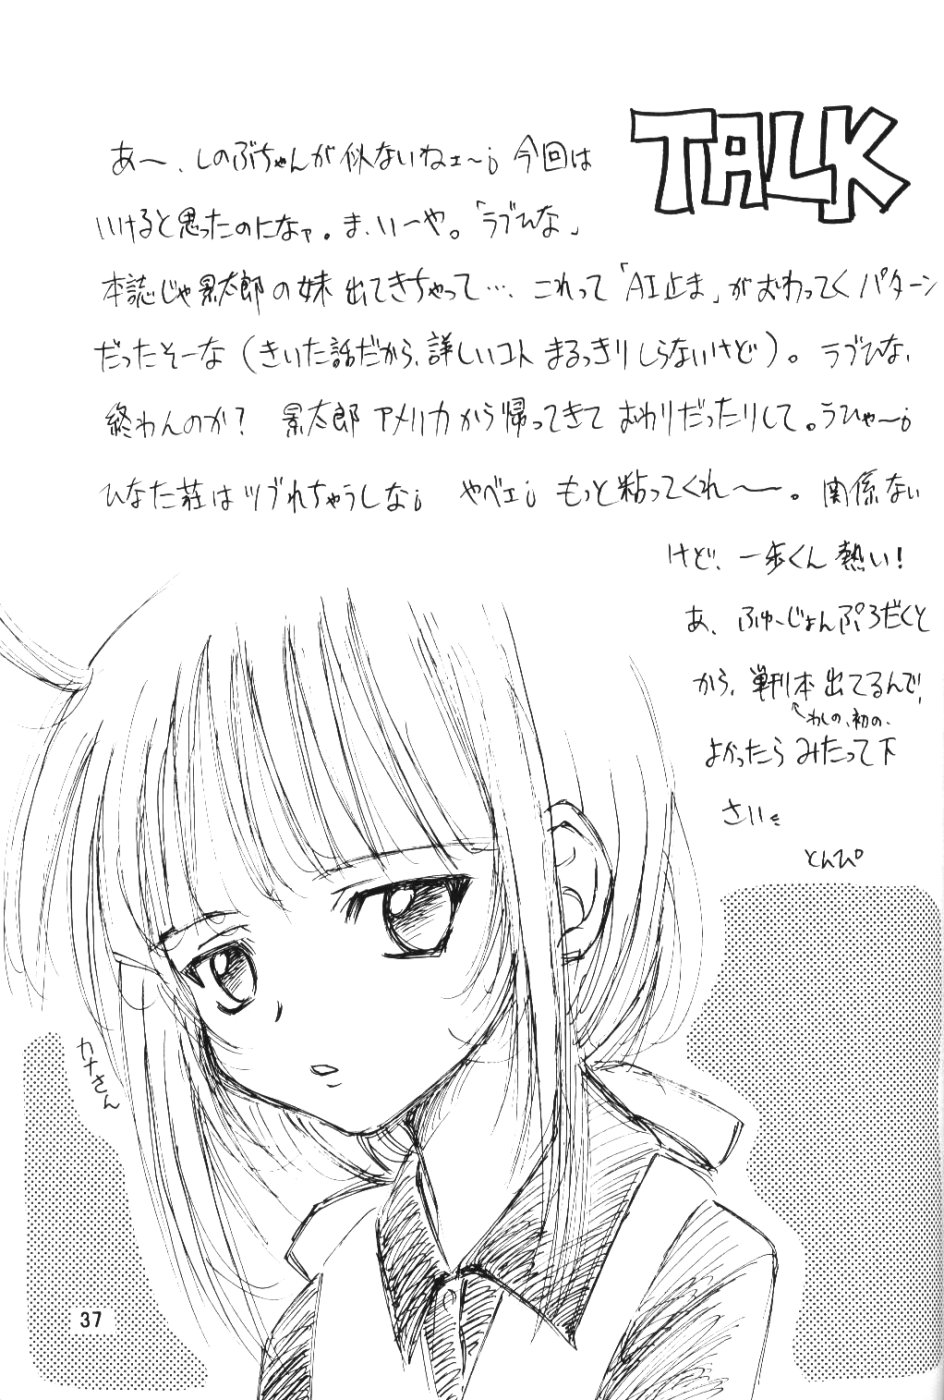 TALK
あ〜、しのぶちゃんが似ないねェ〜；今回は
いけると思ったのになァ。ま、いーや。「ラブひな」
本誌じゃ景太郎の妹出てきちゃって…、これって「AI止ま」がおわってくパターン
だったそーな（きいた話だから、詳しいコトまるっきりしらないけど）。ラブひな、
終わんのか？ 景太郎アメリカから帰ってきておわりだったりして。うひゃ〜；
ひなた荘はツブれちゃうしな； やべェ；もっと粘ってくれ〜〜。関係ない
けど、一歩くん熱い！
あ、ふゅーじょんぷろだくと
から、単刊本出てるんで、
↑わしの、初の、
よかったらみたって下
さい
とんぴ
カナさん
37